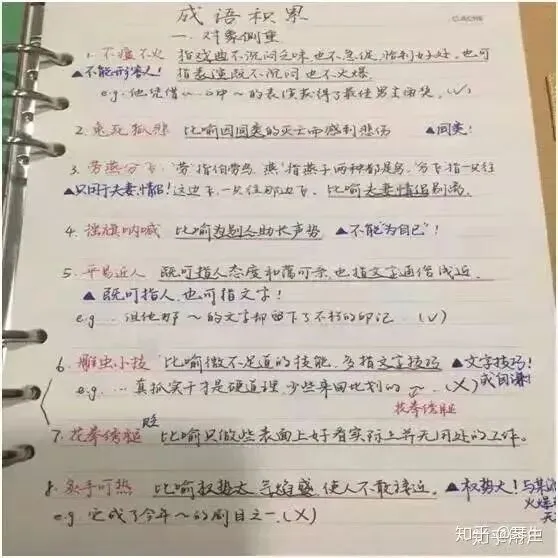 成语积累
一、对象侧重
1. 不瘟不火 指戏曲不沉闷乏味也不急促,恰到好处,也可
▲不能形容人! 指表演既不沉闷也不火爆.
e.g. 他凭借……中~的表演获得了最佳男主角奖. (√)
2. 兔死狐悲 比喻因同类的灭亡而感到悲伤 ▲同类!
3. 劳燕分飞 "劳"指伯劳鸟,"燕"指燕子两种都是鸟,分飞指一只往
▲只用于夫妻、情侣! 这边飞,一只往那边飞. 比喻夫妻情侣别离.
4. 摇旗呐喊 比喻为别人助长声势 ▲不能"为自己"!
5. 平易近人 既可指人态度和蔼可亲,也指文字通俗浅近.
▲既可指人,也可指文字!
e.g. … 但他那~的文字却留下了不朽的印记. (√)
6. 雕虫小技 比喻微不足道的技能,多指文字技巧 ▲文字技巧!
e.g. … 真抓实干才是硬道理,少些来回比划的~. (×) 或自谦
花拳绣腿
7. 花拳绣腿 贬 比喻只做些表面上好看实际上并无用处的工作.
8. 炙手可热 比喻权势大,气焰盛,使人不敢接近. ▲权势大! 与某
e.g. 它成了今年~的剧目之一. (×) 火爆
知乎 @